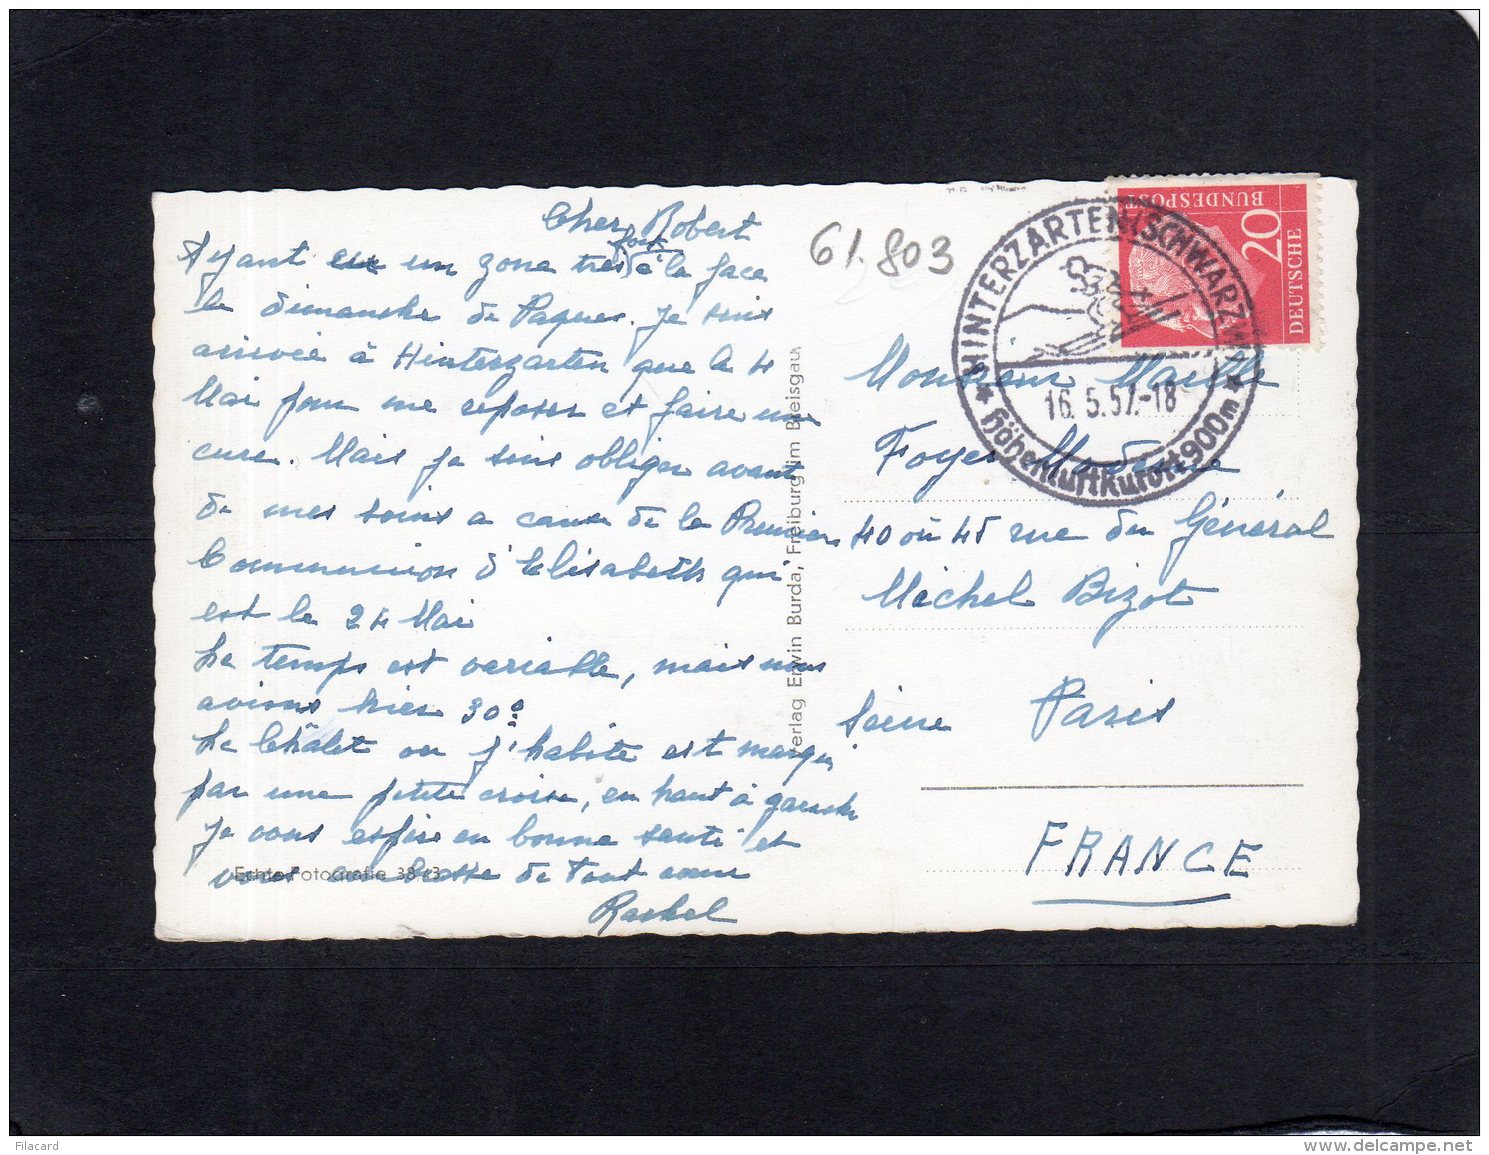 Cher Robert
Ayant eu un zona tres fort à la face
le dimanche de Paques. Je suis
arrivée à Hinterzarten que le 4
Mai pour me reposer et faire une
cure. Mais je suis obliger avant
de mes soins a cause de la Premiere
Communion d'Elisabeth qui
est le 24 Mai
Le temps est variable, mais nous
avions hier 30°
Le Châlet ou j'habite est marqué
par une petite croise, en haut à gauche
Je vous espère en bonne santé et
vous embrasse de tout cœur
Rachel
Echte Fotografie 38 83
Verlag Erwin Burda, Freiburg im Breisgau
61.803
HINTERZARTEN (SCHWARZW.)
16.5.57.-18
Höhenluftkurort 900m
20
DEUTSCHE
BUNDESPOST
Monsieur Maille
Foyer Moderne
40 ou 45 rue du Général
Michel Bizot
Seine Paris
FRANCE
Filacard
www.delcampe.net